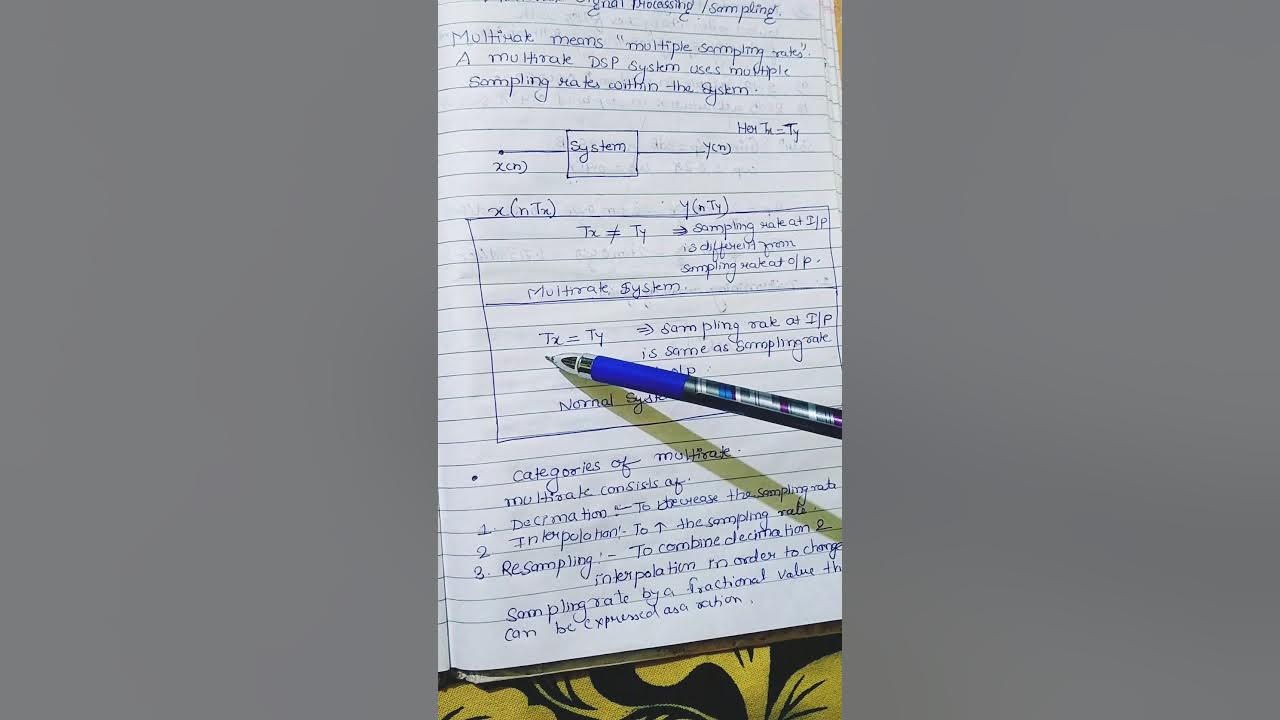 Signal Processing / Sampling.
Multirate means "multiple sampling rates".
A multirate DSP system uses multiple
sampling rates within the system.
Her Tx = Ty
System
x(n)
y(n)
x(nTx)
y(nTy)
Tx ≠ Ty ⇒ sampling rate at I/p
is different from
sampling rate at o/p.
Multirate System.
Tx = Ty ⇒ sampling rate at I/p
is same as sampling rate
o/p.
Normal
• Categories of multirate.
multirate consists of.
1. Decimation :- To decrease the sampling rate
2 Interpolation :- To ↑ the sampling rate.
3. Resampling :- To combine decimation &
interpolation in order to change
sampling rate by a fractional value
can be expressed as a ration.